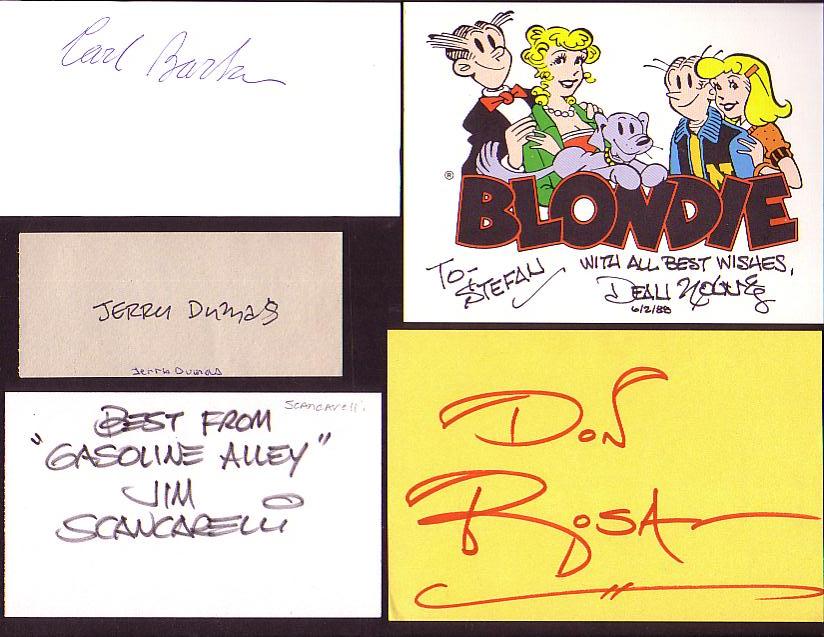 Carl Barks
®
BLONDIE
TO-
STEFAN
WITH ALL BEST WISHES,
DEAN YOUNG
6/2/88
JERRY DUMAS
Jerry Dumas
SCANCARELLI
BEST FROM
"GASOLINE ALLEY"
JIM
SCANCARELLI
DON
ROSA
N